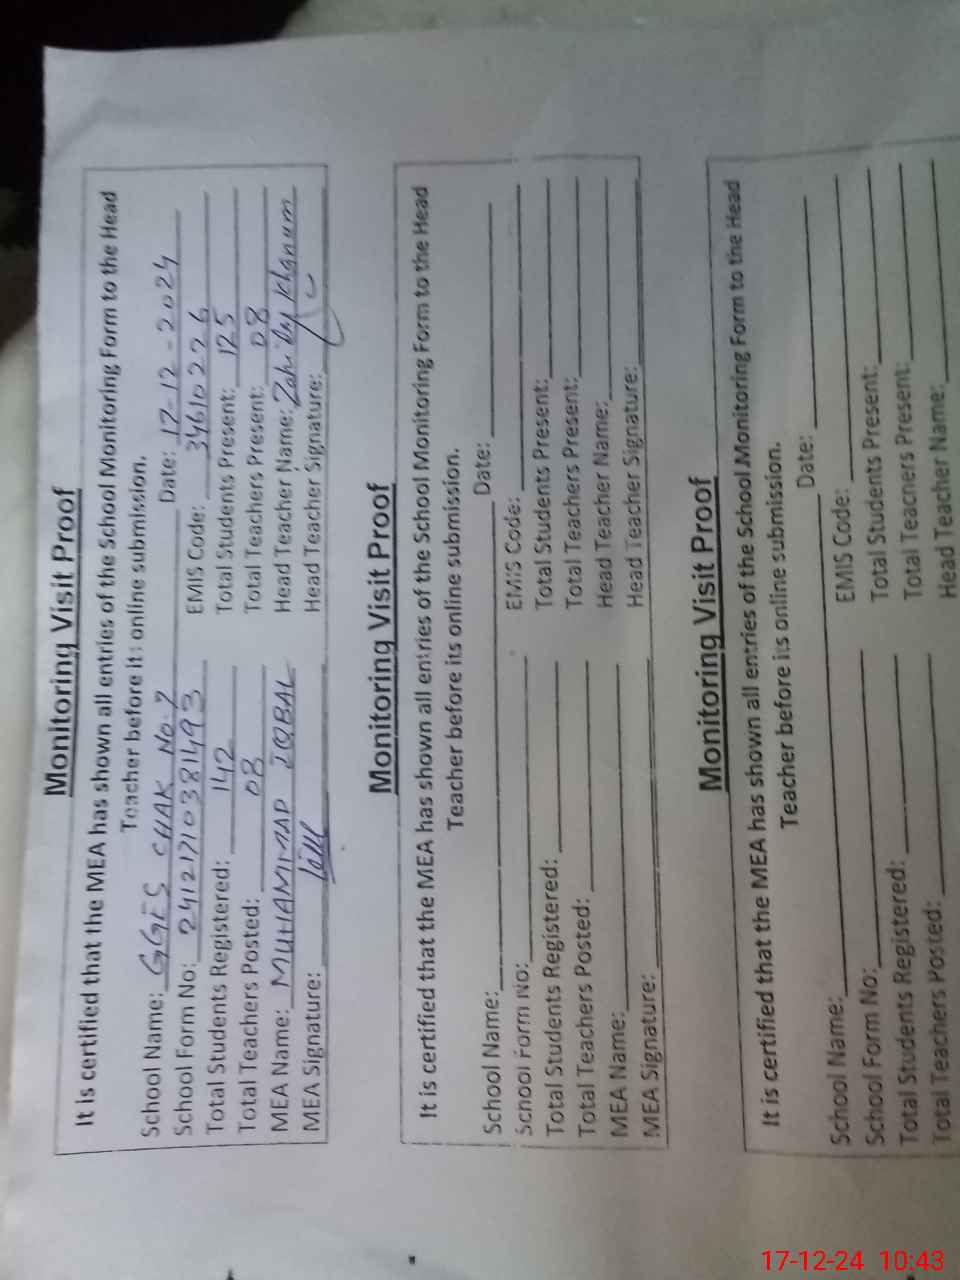 Monitoring Visit Proof
It is certified that the MEA has shown all entries of the School Monitoring Form to the Head
Teacher before its online submission.
School Name: GGES CHAK No. 7 Date: 17-12-2024
School Form No: 24121710381493 EMIS Code: 34610226
Total Students Registered: 142 Total Students Present: 125
Total Teachers Posted: 08 Total Teachers Present: 08
MEA Name: MUHAMMAD IQBAL Head Teacher Name: Khanum
MEA Signature: Head Teacher Signature:
Monitoring Visit Proof
It is certified that the MEA has shown all entries of the School Monitoring Form to the Head
Teacher before its online submission.
School Name: Date:
School Form No: EMIS Code:
Total Students Registered: Total Students Present:
Total Teachers Posted: Total Teachers Present:
MEA Name: Head Teacher Name:
MEA Signature: Head Teacher Signature:
Monitoring Visit Proof
It is certified that the MEA has shown all entries of the School Monitoring Form to the Head
Teacher before its online submission.
School Name: Date:
School Form No: EMIS Code:
Total Students Registered: Total Students Present:
Total Teachers Posted: Total Teachers Present:
Head Teacher Name:
17-12-24 10:43